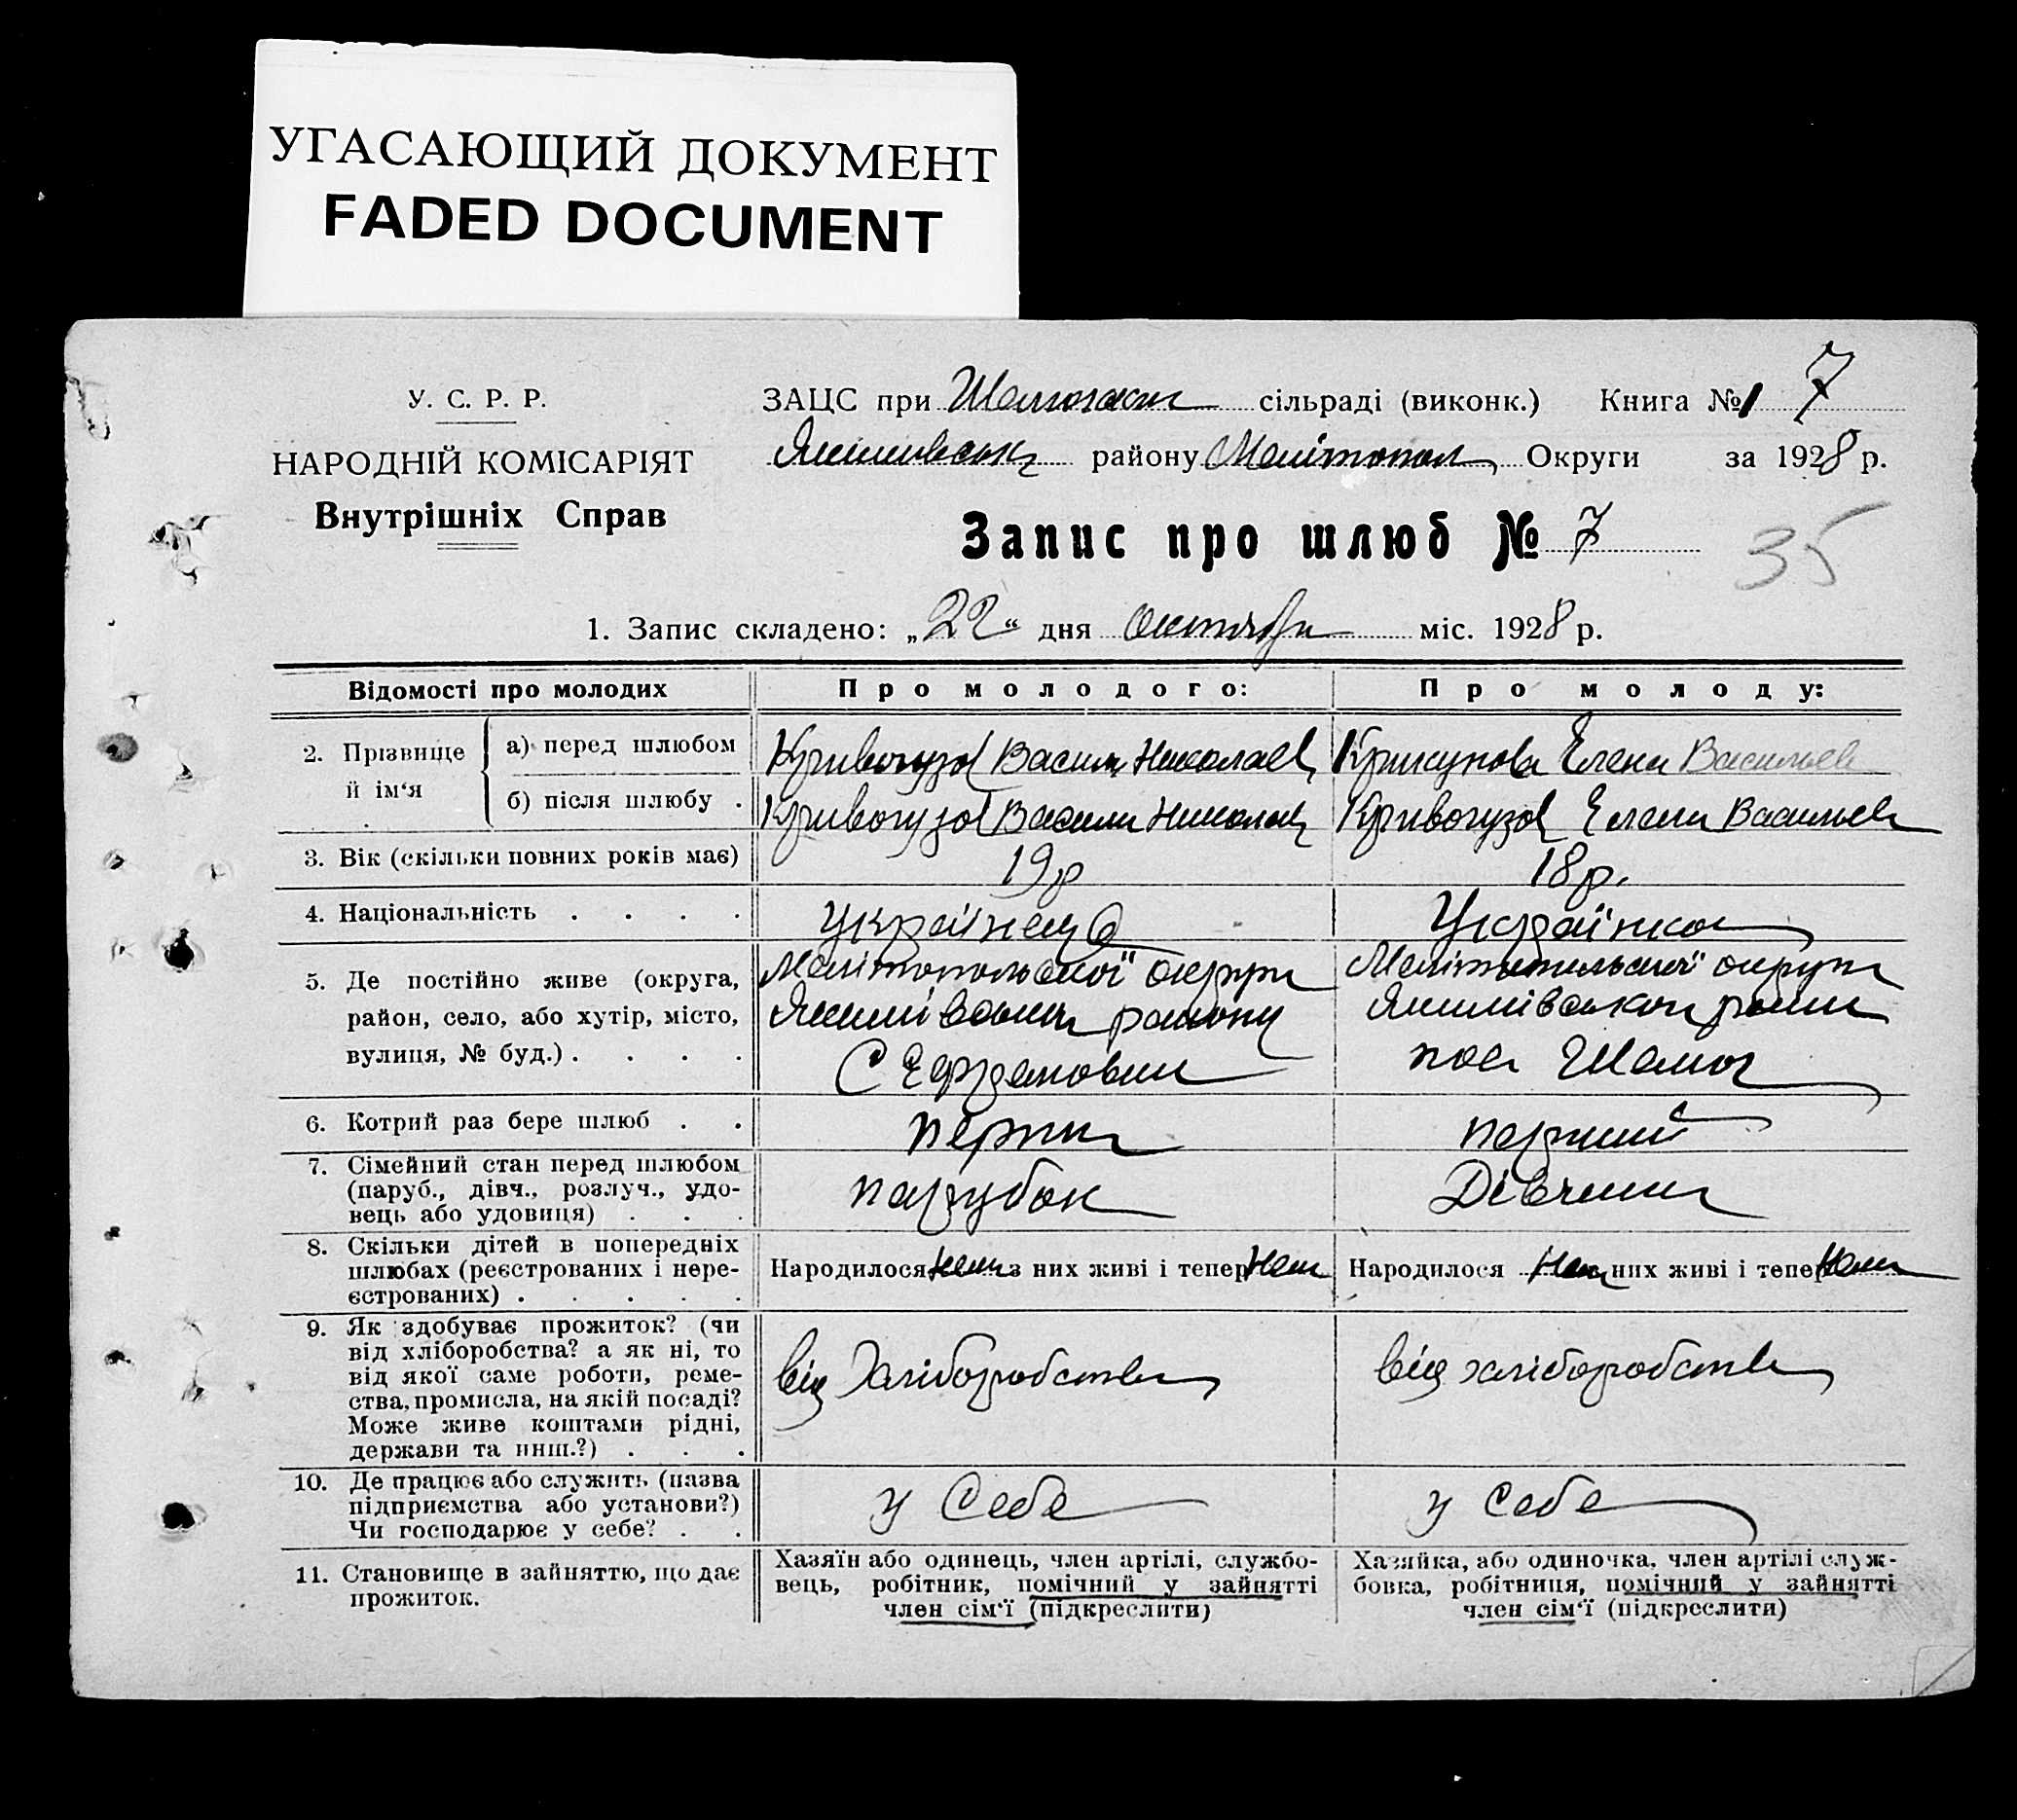 УГАСАЮЩИЙ ДОКУМЕНТ
FADED DOCUMENT
У. С. Р. Р.
НАРОДНІЙ КОМІСАРІЯТ
Внутрішніх Справ
ЗАЦС при сільраді (виконк.) Книга № 7
району Мелітопол Округи за 1928 р.
Запис про шлюб № 7
35
1. Запис складено: „22“ дня октября міс. 1928 р.
Відомості про молодих Про молодого: Про молоду:
2. Прізвище й ім‘я а) перед шлюбом Кривогузов Васил Николаев Крикунова Елена Васильев
б) після шлюбу . Кривогузов Васили Николаев Кривогузов Елена Васильев
3. Вік (скільки повних років має) 19 р 18 р.
4. Національність . . . . Українець Українка
5. Де постійно живе (округа, Мелітопольської округи Мелітопольської округи
район, село, або хутір, місто, району
вулиця, № буд.) . . . . С Ефремовки пос
6. Котрий раз бере шлюб . . перши перший
7. Сімейний стан перед шлюбом парубок Дівчина
(паруб., дівч., розлуч., удо-
вець або удовиця) . . .
8. Скільки дітей в попередніх
шлюбах (реєстрованих і нере- Народилося нема з них живі і тепер нема Народилося нема з них живі і тепер нема
єстрованих) . . . . .
9. Як здобуває прожиток? (чи
від хліборобства? а як ні, то
від якої саме роботи, реме- від хліборобства від хліборобства
ства, промисла, на якій посаді?
Може живе коштами рідні,
держави та инш.?) . . .
10. Де працює або служить (назва
підприємства або установи?) у себе у себе
Чи господарює у себе? . .
11. Становище в зайняттю, що дає
прожиток.
Хазяїн або одинець, член артілі, службо-
вець, робітник, помічний у зайнятті
член сім‘ї (підкреслити)
Хазяйка, або одиночка, член артілі служ-
бовка, робітниця, помічний у зайнятті
член сім‘ї (підкреслити)